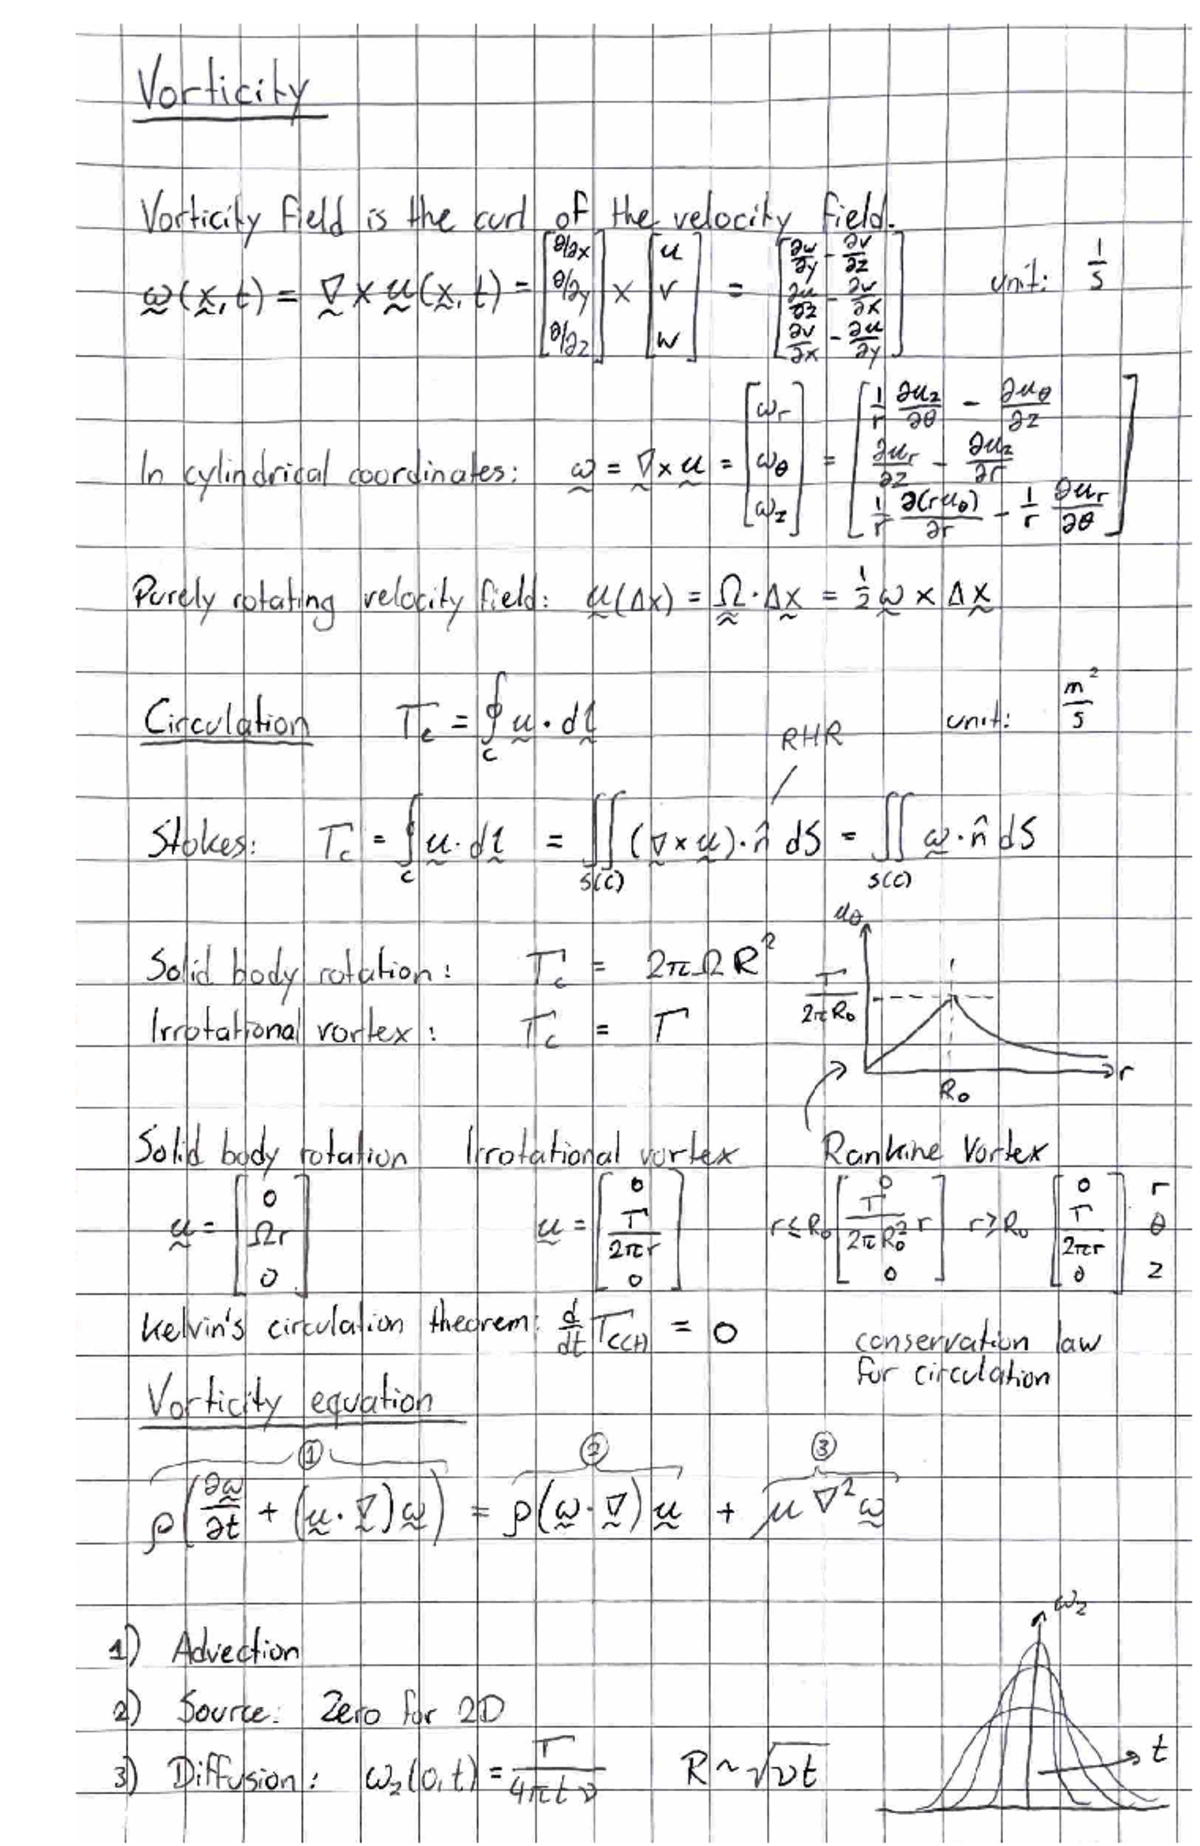 Vorticity
Vorticity field is the curl of the velocity field.
ω(x,t) = ∇ × u(x,t) = [∂/∂x ∂/∂y ∂/∂z] × [u v w] = [∂w/∂y - ∂v/∂z ∂u/∂z - ∂v/∂x ∂v/∂x - ∂u/∂y] unit: 1/s
In cylindrical coordinates: ω = ∇×u = [ω_r ω_θ ω_z] = [1/r ∂u_z/∂θ - ∂u_θ/∂z ∂u_r/∂z - ∂u_z/∂r 1/r ∂(ru_θ)/∂r - 1/r ∂u_r/∂θ]
Purely rotating velocity field: u(Δx) = Ω·Δx = 1/2 ω × Δx
Circulation Γ_c = ∮_c u·dl unit: m²/s
RHR
Stokes: Γ_c = ∮_c u·dl = ∬_S(C) (∇×u)·n̂ dS = ∬_S(C) ω·n̂ dS
Solid body rotation: Γ_c = 2πΩR²
Irrotational vortex: Γ_c = Γ
u_θ
Γ/2πR₀
r
R₀
Solid body rotation Irrotational vortex Rankine Vortex
u = [0 Ωr 0] u = [0 Γ/2πr 0] r≤R₀ [0 Γ/2πR₀² r 0] r≥R₀ [0 Γ/2πr 0] r θ z
Kelvin's circulation theorem: d/dt Γ_C(t) = 0 conservation law
for circulation
Vorticity equation
① ② ③
ρ(∂ω/∂t + (u·∇)ω) = ρ(ω·∇)u + μ∇²ω
1) Advection
2) Source: Zero for 2D
3) Diffusion: ω_z(0,t) = Γ/4πtν R~√νt
ω_z
t